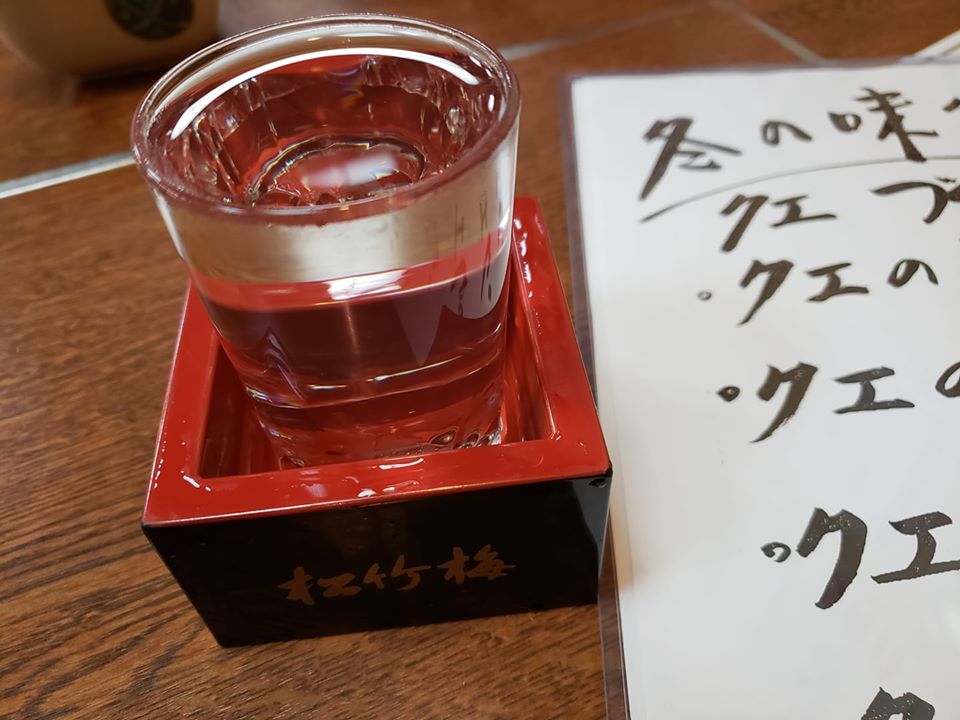 松竹梅
冬の味
クエ づ
・クエの
・クエの
・クエ